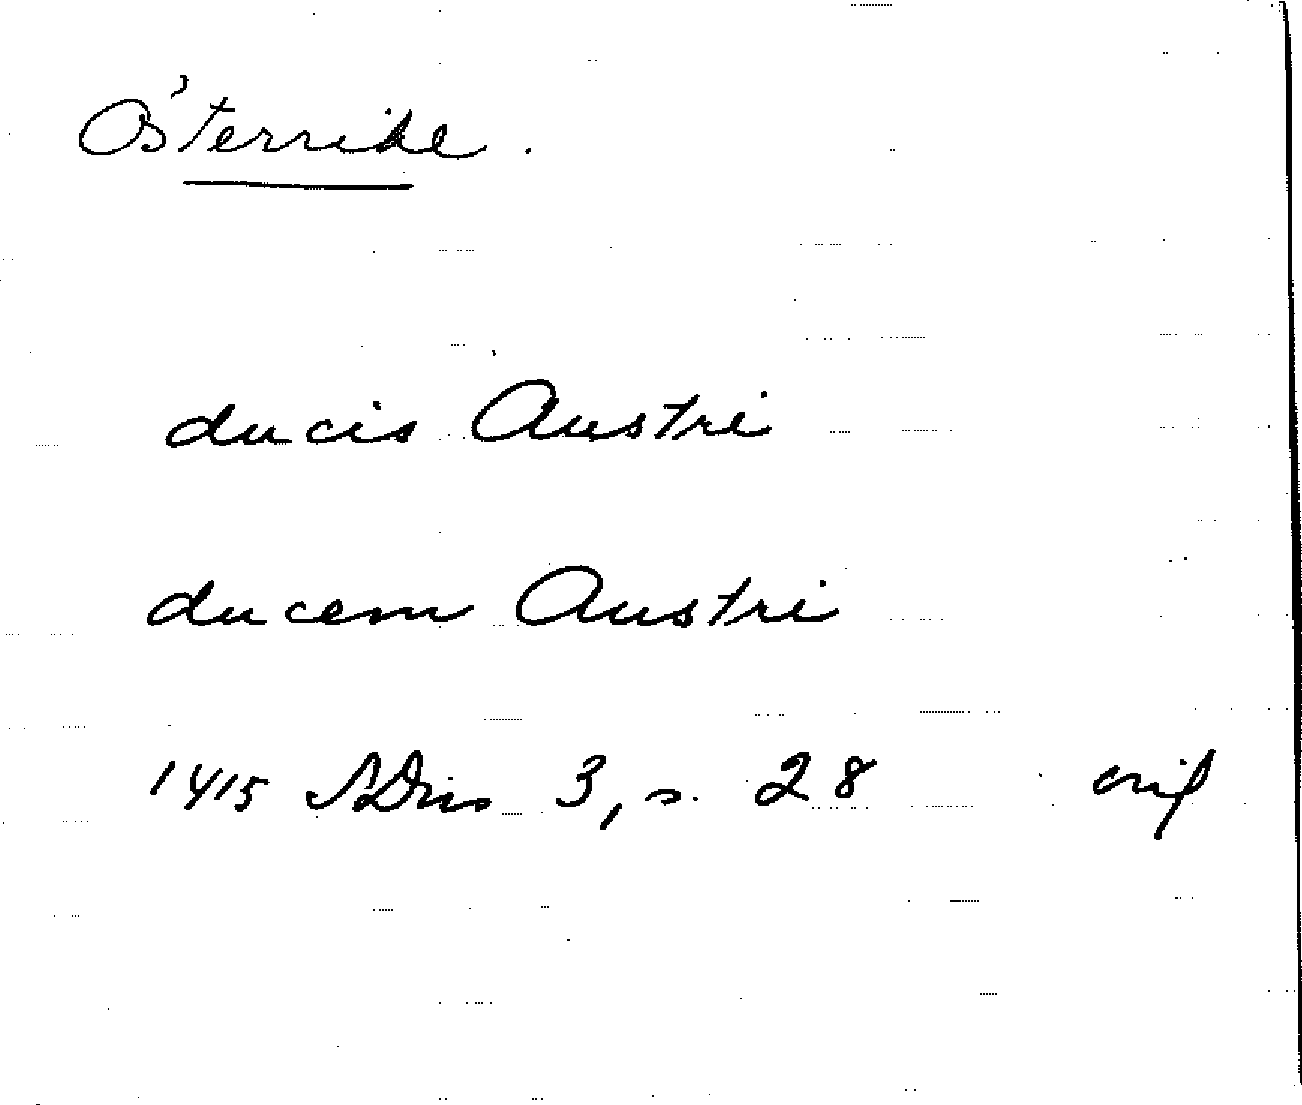 Österrike.
ducis Austri
ducem Austri
1415 SDns 3, s. 28 orig